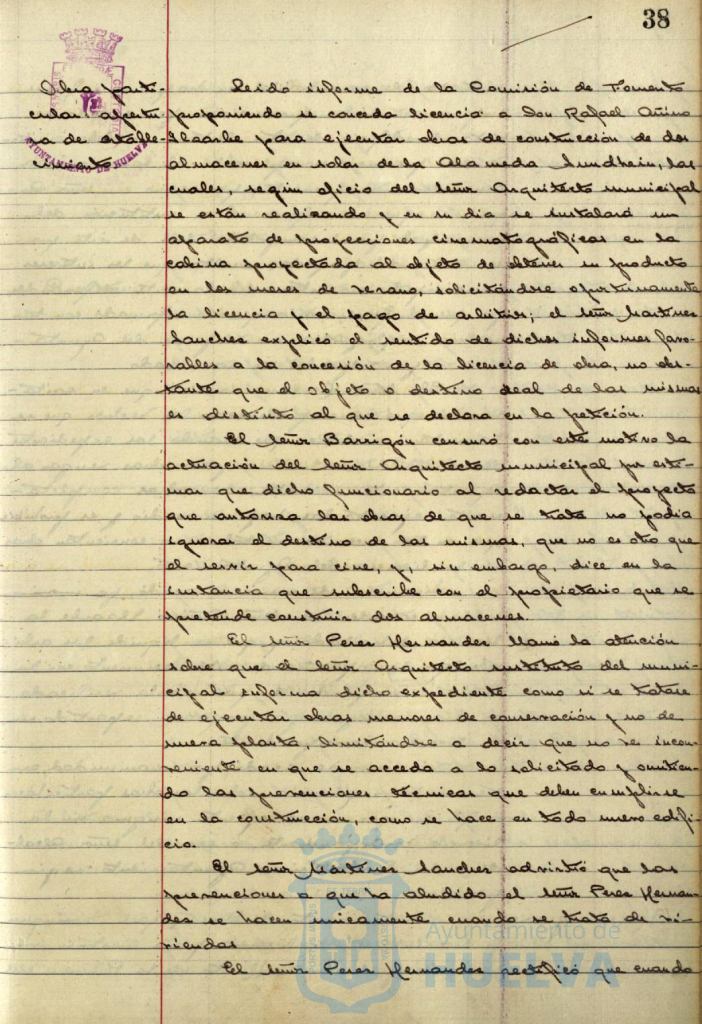 38
Obra parti-
cular apertu-
ra de estable-
cimiento
AYUNTAMIENTO DE HUELVA
Leido informe de la Comisión de Fomento
proponiendo se conceda licencia a Don Rafael
para ejecutar obras de construcción de dos
almacenes en solar de la Alameda Sundhein, las
cuales, según oficio del Señor Arquitecto municipal
se están realizando y en su dia se instalará un
aparato de proyecciones cinematográficas en la
cabina proyectada al objeto de obtener su producto
en los meses de verano, solicitándose oportunamente
la licencia y el pago de arbitrios; el señor Martinez
Sanchez explicó el sentido de dichos informes favo-
rables a la concesión de la licencia de obra, no obs-
tante que el objeto o destino real de las mismas
es distinto al que se declara en la petición.
El señor Barrigón censuró con este motivo la
actuación del Señor Arquitecto municipal por esti-
mar que dicho funcionario al redactar el proyecto
que autoriza las obras de que se trata no podia
ignorar el destino de las mismas, que no es otro que
el servir para cine, y, sin embargo, dice en la
instancia que subscribe con el propietario que se
pretende construir dos almacenes.
El señor Perez Hernandez llamó la atención
sobre que el Señor Arquitecto sustituto del muni-
cipal informa dicho expediente como si se tratase
de ejecutar obras menores de conservación y no de
nueva planta, limitándose a decir que no ve incon-
veniente en que se acceda a lo solicitado y omitien-
do las prevenciones técnicas que deben cumplirse
en la construcción, como se hace en todo nuevo edifi-
cio.
El señor Martinez Sanchez advirtió que las
prevenciones a que ha aludido el señor Perez Hernan-
dez se hacen unicamente cuando se trata de vi-
viendas
El señor Perez Hernandez rectificó que cuando
Ayuntamiento de
HUELVA